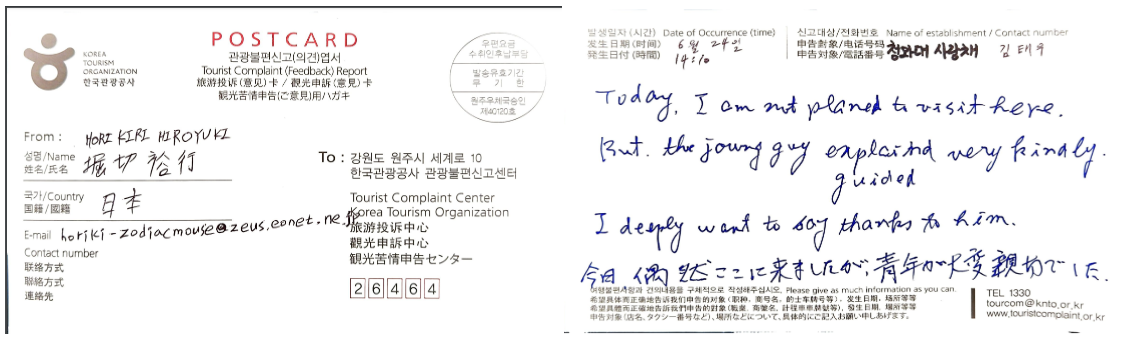 KOREA
TOURISM
ORGANIZATION
한국관광공사
POSTCARD
관광불편신고(의견)엽서
Tourist Complaint (Feedback) Report
旅游投诉(意见)卡 / 觀光申訴(意見)卡
観光苦情申告(ご意見)用ハガキ
우편요금
수취인후납부담
발송유효기간
무 기 한
원주우체국승인
제40120호
From : HORI KIRI HIROYUKI
성명/Name
姓名/氏名
堀切 裕行
국가/Country
国籍/國籍
日本
E-mail horiki-zodiacmouse@zeus.eonet.ne.jp
Contact number
联络方式
聯絡方式
連絡先
To : 강원도 원주시 세계로 10
한국관광공사 관광불편신고센터
Tourist Complaint Center
Korea Tourism Organization
旅游投诉中心
觀光申訴中心
観光苦情申告センター
26464
발생일자 (시간) Date of Occurrence (time)
发生日期(时间)
発生日付(時間)
6월 24일
14:10
신고대상/전화번호 Name of establishment / Contact number
申告對象/电话号码
申告対象/電話番号
청와대 사랑채 김태우
Today, I am not planed to visit here.
But. the joung guy explaind very kindly.
guided
I deeply want to say thanks to him.
今日 偶然ここに来ましたが、青年が大変親切でした.
여행불편사항과 건의내용을 구체적으로 작성해주십시오. Please give as much information as you can.
希望具体而正确地告诉我们申告的对象(职种、商号名、的士车牌号等)、发生日期、场所等等
希望具體而正確地告訴我們申告的對象(職業、商號名、計程車車牌號等)、發生日期、場所等等
申告対象(店名、タクシー番号など)、場所などについて、具体的にご記入お願い申しあげます。
TEL 1330
tourcom@knto.or.kr
www.touristcomplaint.or.kr